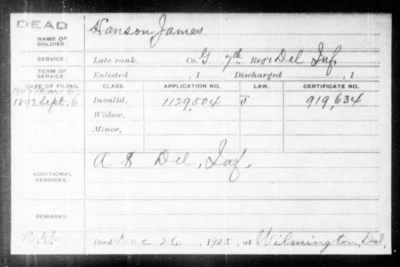 DEAD
NAME OF SOLDIER:
Hanson James
SERVICE:
Late rank, Co. G 7th Reg't Del Inf.
TERM OF SERVICE:
Enlisted , 1 Discharged , 1
DATE OF FILING. CLASS. APPLICATION NO. LAW. CERTIFICATE NO.
1892 Sept. 6 Invalid, 1129,504 919,634
Widow,
Minor,
A 8 Del, Inf.
ADDITIONAL SERVICES:
REMARKS:
Died Dec 26, 1925, at Wilmington, Del.